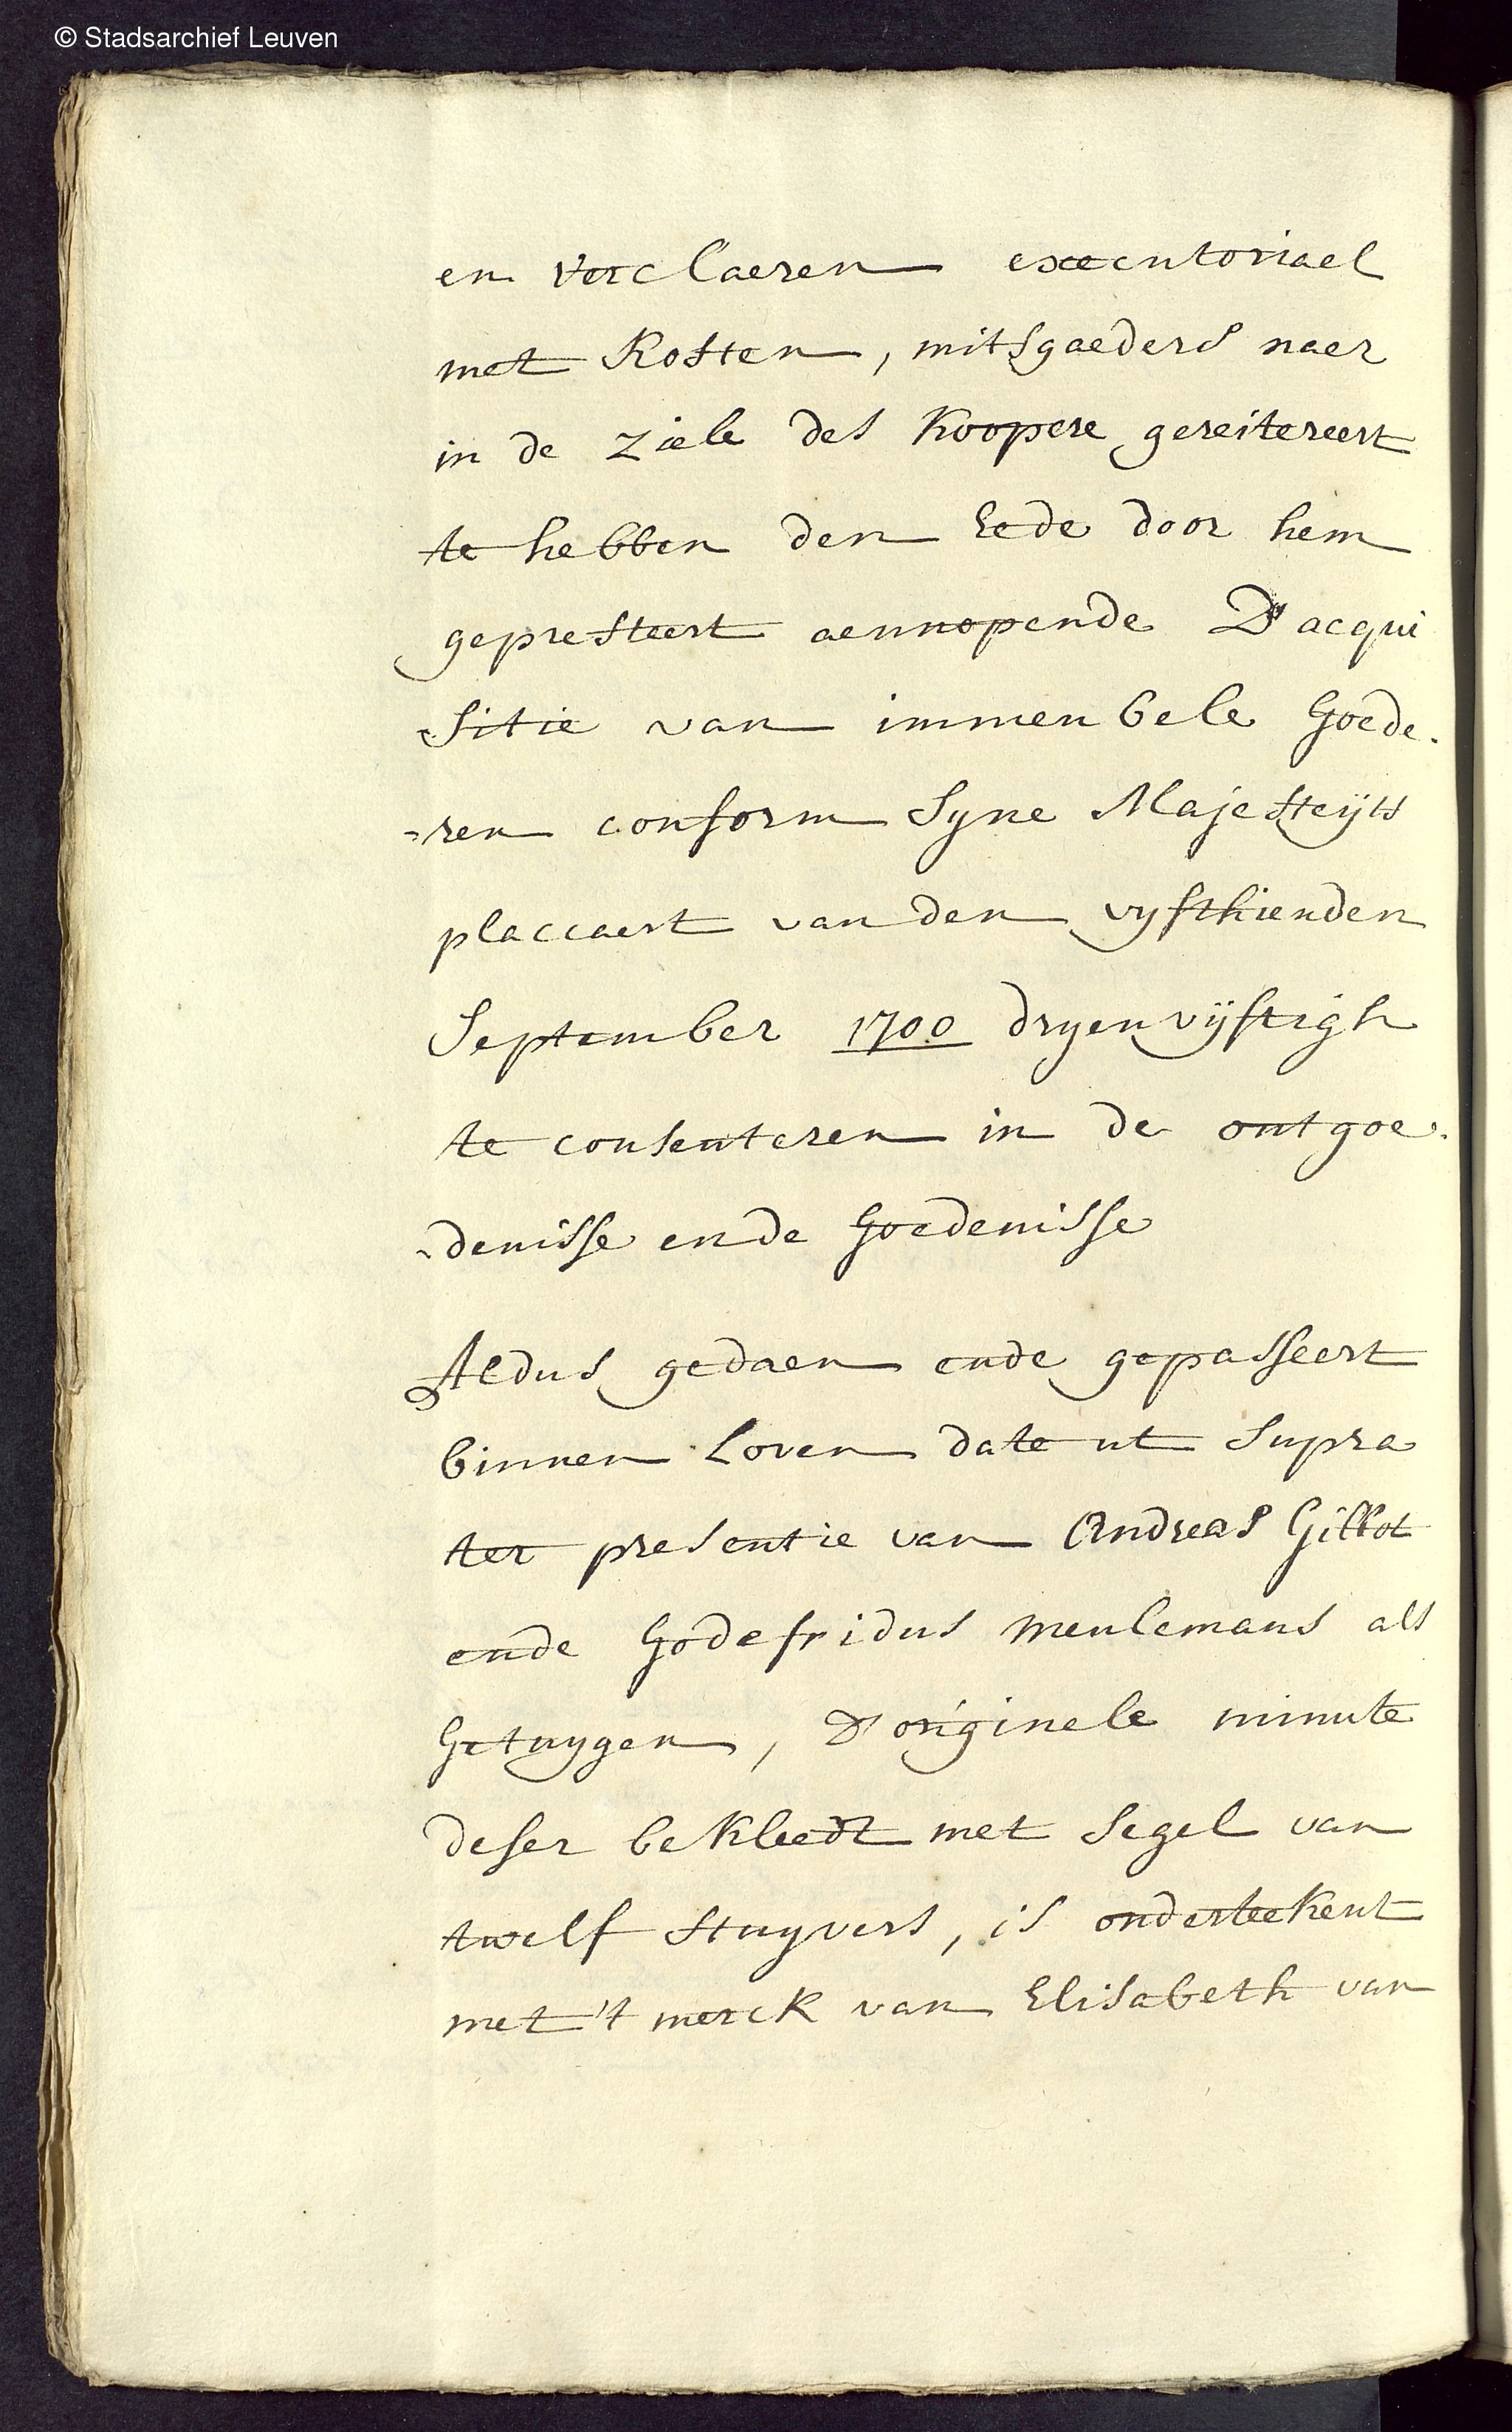 © Stadsarchief Leuven
en verclaeren executoriael
met Kosten, mitsgaeders naer
in de ziele des Koopere gereitereert
te hebben den Eede door hem
gepresteert aennopende D'acqui
sitie van immeubele Goede.
-ren conform Syne Majesteijts
placcaert van den vyfthienden
September 1700 dryenvijftigh
te consenteren in de ontgoe.
-denisse ende Goedenisse
Aldus gedaen ende gepasseert
binnen Loven date ut supra
ter presentie van Andreas Gillot
ende Godefridus Meulemans als
Getuygen, d'originele minute
deser bekleedt met segel van
twelf stuyvers, is onderteekent
met 't merck van Elisabeth van